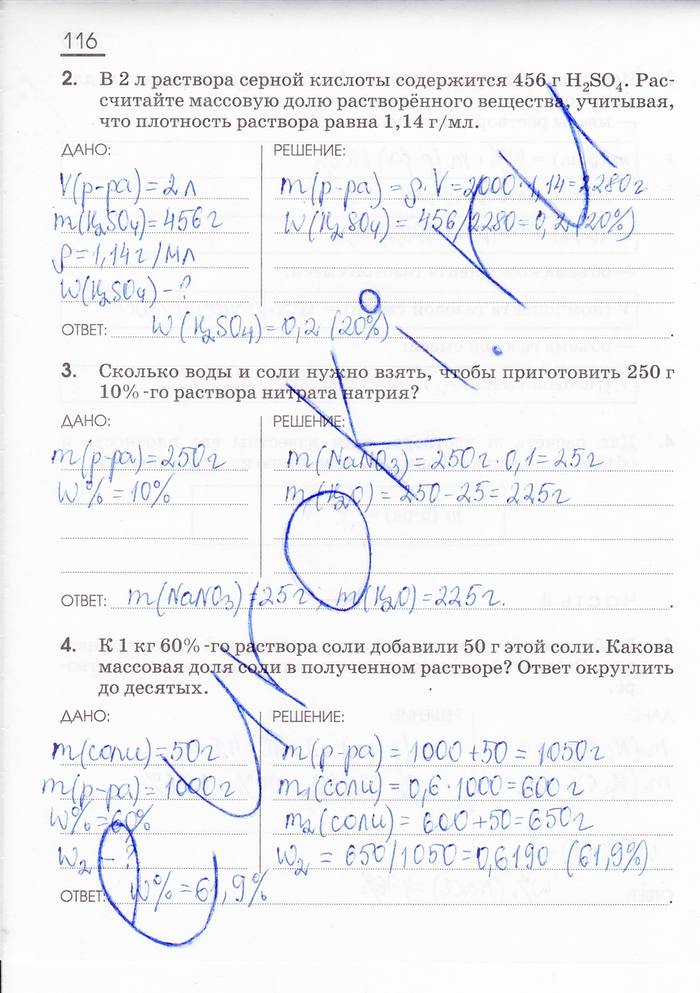 116
2. В 2 л раствора серной кислоты содержится 456 г H₂SO₄. Рас-
считайте массовую долю растворённого вещества, учитывая,
что плотность раствора равна 1,14 г/мл.
ДАНО:
V(р-ра)=2л
m(H₂SO₄)=456г
ρ=1,14г/мл
W(H₂SO₄)-?
РЕШЕНИЕ:
m(р-ра)=ρ·V=2000·1,14=2280г
W(H₂SO₄)=456/2280=0,2(20%)
ОТВЕТ: W(H₂SO₄)=0,2(20%)
3. Сколько воды и соли нужно взять, чтобы приготовить 250 г
10%-го раствора нитрата натрия?
ДАНО:
m(р-ра)=250г
W%=10%
РЕШЕНИЕ:
m(NaNO₃)=250г·0,1=25г
m(H₂O)=250-25=225г
ОТВЕТ: m(NaNO₃)=25г, m(H₂O)=225г.
4. К 1 кг 60%-го раствора соли добавили 50 г этой соли. Какова
массовая доля соли в полученном растворе? Ответ округлить
до десятых.
ДАНО:
m(соли)=50г
m(р-ра)=1000г
W%=60%
W₂-?
РЕШЕНИЕ:
m(р-ра)=1000+50=1050г
m₁(соли)=0,6·1000=600г
m₂(соли)=600+50=650г
W₂=650/1050=0,6190 (61,9%)
ОТВЕТ: W%=61,9%